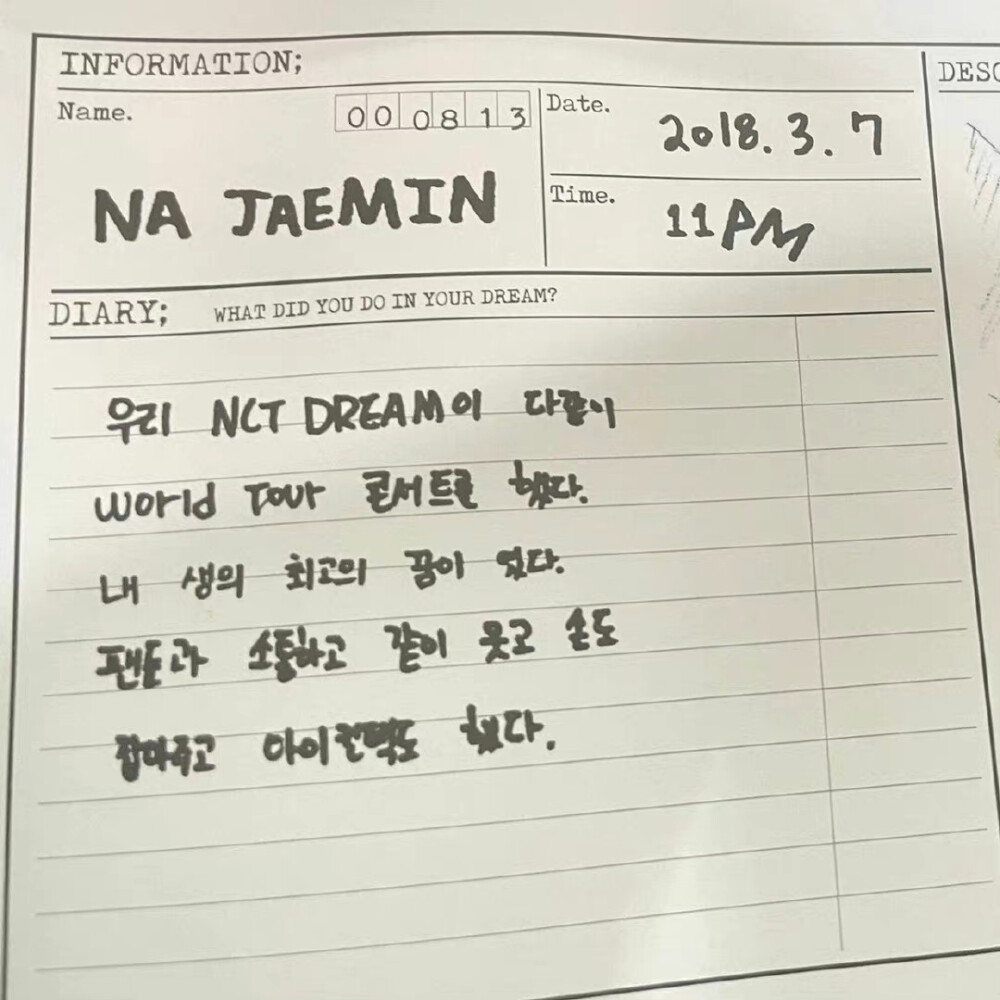 INFORMATION;
DESC
Name.
000813
Date.
2018. 3. 7
NA JAEMIN
Time.
11PM
DIARY; WHAT DID YOU DO IN YOUR DREAM?
우리 NCT DREAM이 다같이
world Tour 콘서트를 했다.
내 생의 최고의 꿈이 었다.
팬들과 소통하고 같이 웃고 손도
잡아주고 아이컨택도 했다.